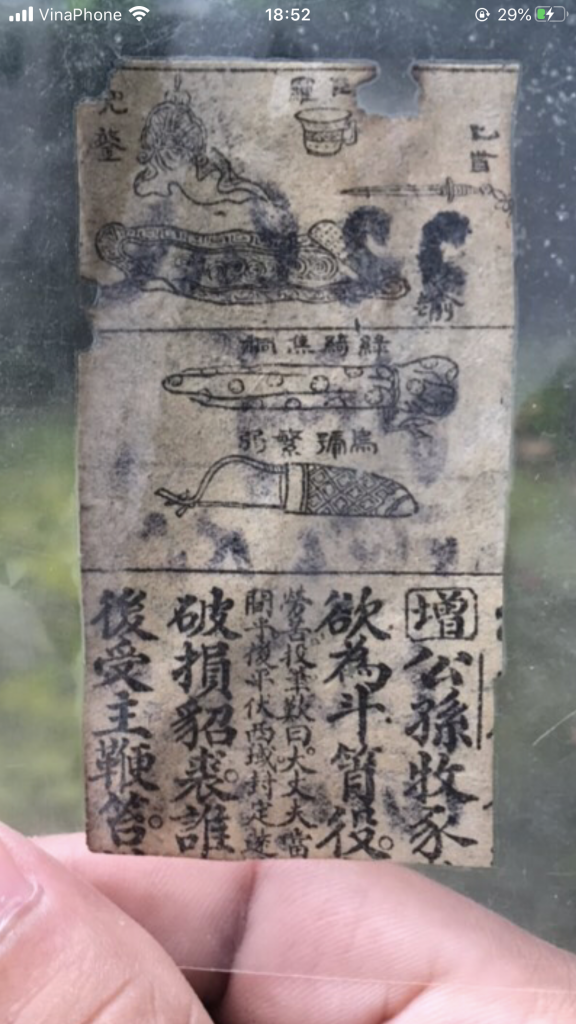 VinaPhone 18:52 29%
匕首
叵羅
兜鍪
綠綺焦桐
烏號繁弱
增公孫牧豕
欲為斗筲役。
勞苦投筆歎曰。大丈夫當
間乎後平伏西域封定遠
破損貂裘。誰
後受主鞭笞。